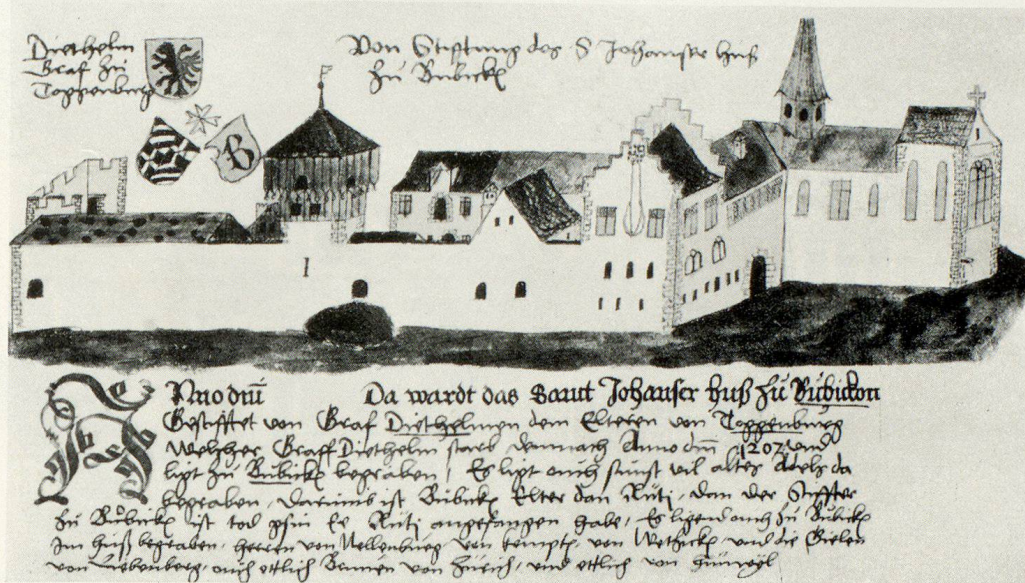 Diethelm
Graf zu
Toppenberg
Von Stifftung des S Johanser huß
zu Bubickē
B
1
Anno dm̄ Da wardt das Sant Johanser huß zu Bubickon
Gestifftet von Graf Diethelmen dem Elteren von Toppenburg
Welcher Graff Diethelm starb darnach Anno dm̄ 1207 und
ligt zu Bubickē begraben, Es ligt ouch sunst vil alter Adels da
begraben, darumb ist Bubickē Elter dan Rüti, dan der Stiffter
zu Bubickē ist tod gsin Ee Rüti angefangen habe, Es ligend ouch zu Bubickē
Im huß begraben, herren von Nellenburg von kempten, von Wetzickē, und die Gielen
von Liebenberg, ouch ettlich von Zürich, und ettlich von hunwyl